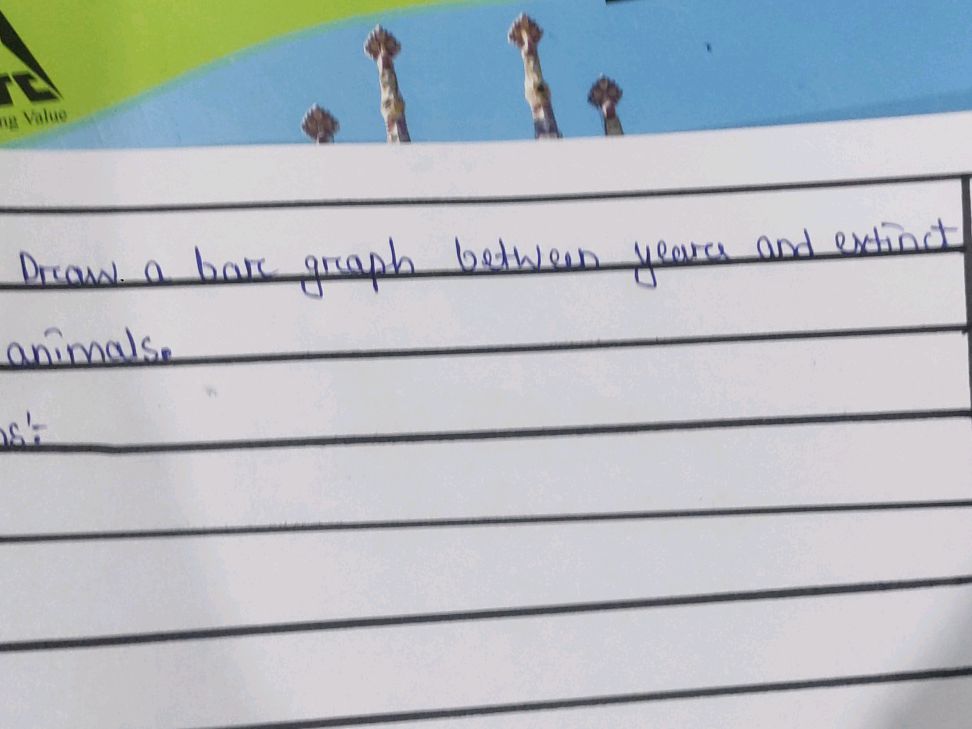 ng Value
Draw. a bar graph between years and extinct
animals.
ns:-